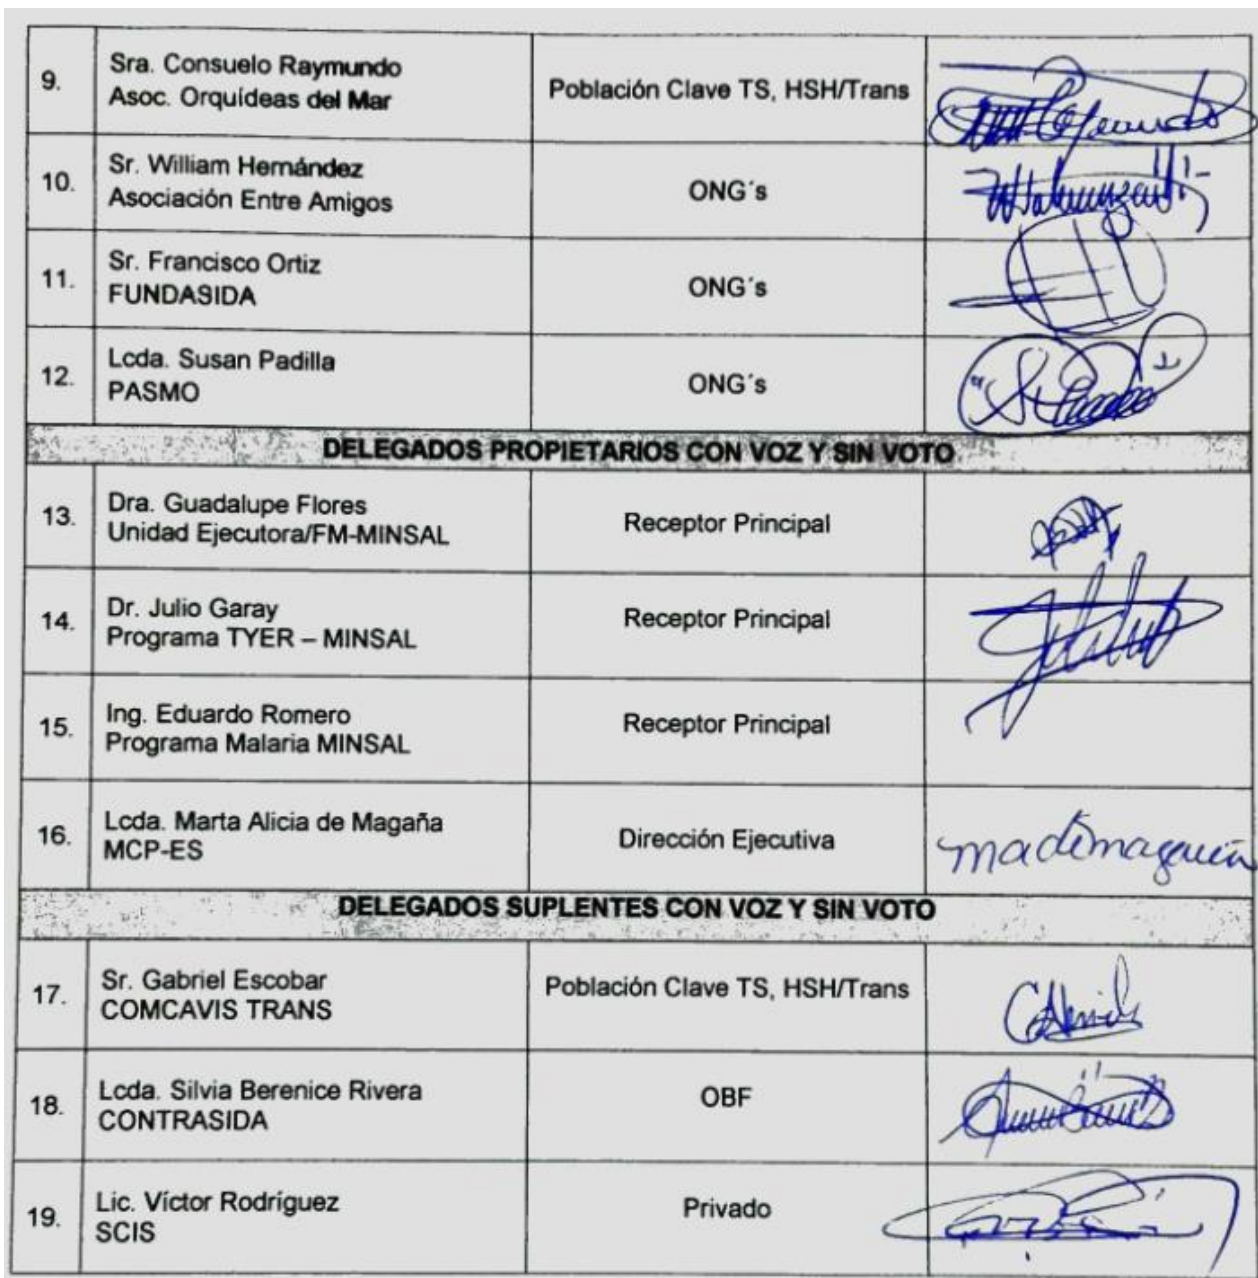 9.
Sra. Consuelo Raymundo
Asoc. Orquídeas del Mar
Población Clave TS, HSH/Trans
10.
Sr. William Hernández
Asociación Entre Amigos
ONG´s
11.
Sr. Francisco Ortiz
FUNDASIDA
ONG´s
12.
Lcda. Susan Padilla
PASMO
ONG´s
DELEGADOS PROPIETARIOS CON VOZ Y SIN VOTO
13.
Dra. Guadalupe Flores
Unidad Ejecutora/FM-MINSAL
Receptor Principal
14.
Dr. Julio Garay
Programa TYER – MINSAL
Receptor Principal
15.
Ing. Eduardo Romero
Programa Malaria MINSAL
Receptor Principal
16.
Lcda. Marta Alicia de Magaña
MCP-ES
Dirección Ejecutiva
DELEGADOS SUPLENTES CON VOZ Y SIN VOTO
17.
Sr. Gabriel Escobar
COMCAVIS TRANS
Población Clave TS, HSH/Trans
18.
Lcda. Silvia Berenice Rivera
CONTRASIDA
OBF
19.
Lic. Víctor Rodríguez
SCIS
Privado